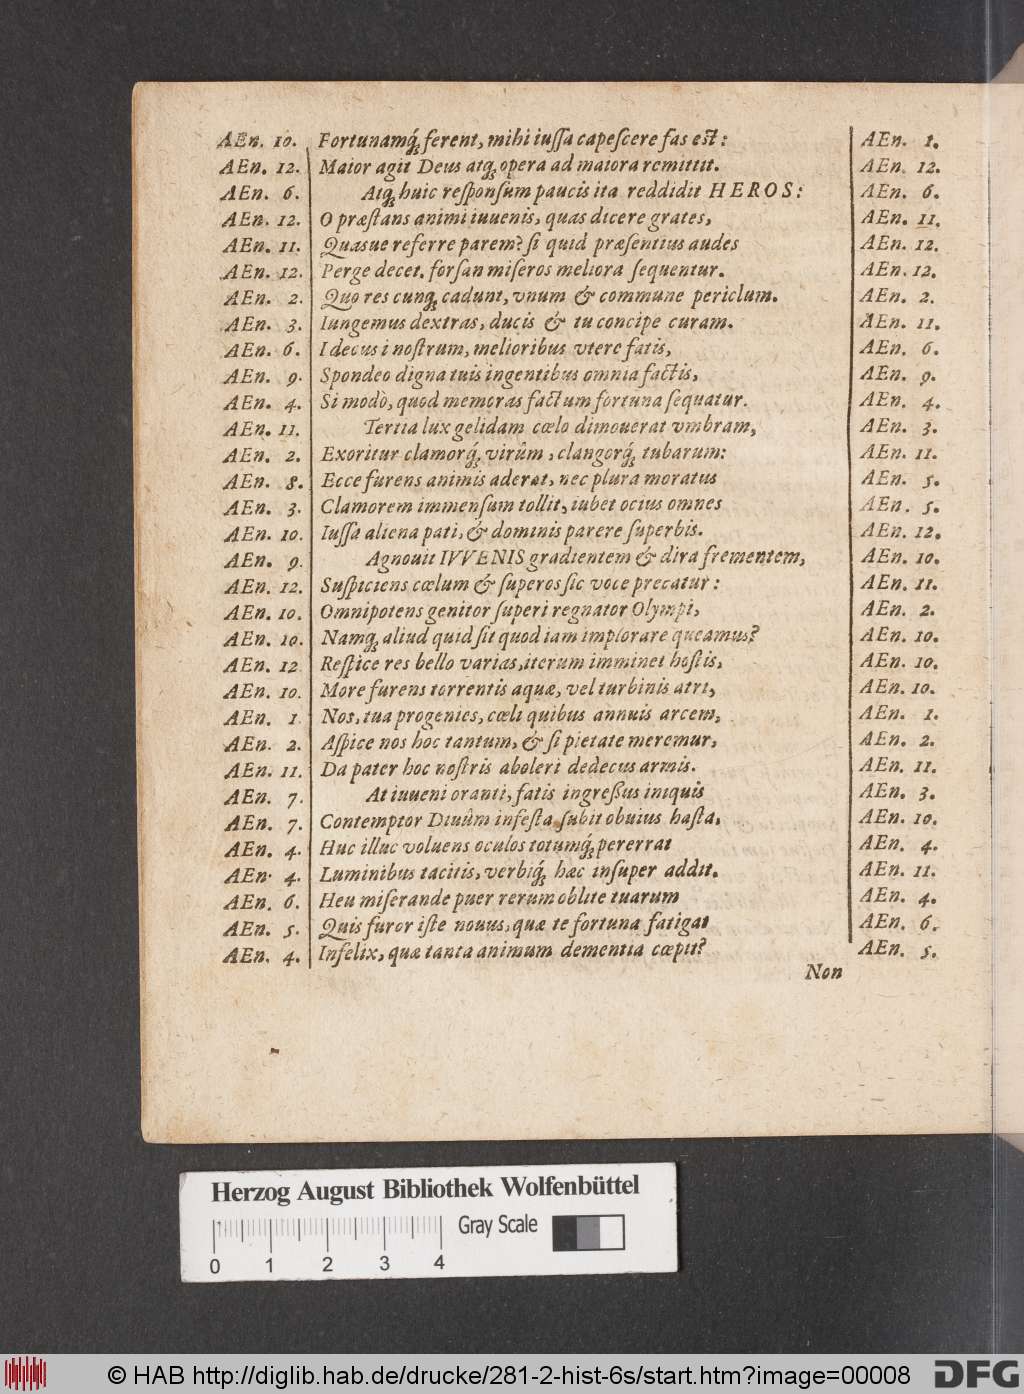 AEn. 10. Fortunamq́; ferent, mihi iuſſa capeſcere fas eſt: AEn. 1.
AEn. 12. Maior agit Deus atq; opera ad maiora remittit. AEn. 12.
AEn. 6. Atq; huic reſponſum paucis ita reddidit HEROS: AEn. 6.
AEn. 12. O præſtans animi iuuenis, quas dicere grates, AEn. 11.
AEn. 11. Quasue referre parem? ſi quid præſentius audes AEn. 12.
AEn. 12. Perge decet. forſan miſeros meliora ſequentur. AEn. 12.
AEn. 2. Quo res cunq; cadunt, vnum & commune periclum. AEn. 2.
AEn. 3. Iungemus dextras, ducis & tu concipe curam. AEn. 11.
AEn. 6. I decus i noſtrum, melioribus vtere fatis, AEn. 6.
AEn. 9. Spondeo digna tuis ingentibus omnia factis, AEn. 9.
AEn. 4. Si modò, quod memoras factum fortuna ſequatur. AEn. 4.
AEn. 11. Tertia lux gelidam cœlo dimouerat vmbram, AEn. 3.
AEn. 2. Exoritur clamorq́; virûm, clangorq́; tubarum: AEn. 11.
AEn. 8. Ecce furens animis aderat, nec plura moratus AEn. 5.
AEn. 3. Clamorem immenſum tollit, iubet ocius omnes AEn. 5.
AEn. 10. Iuſſa aliena pati, & dominis parere ſuperbis. AEn. 12.
AEn. 9. Agnouit IVVENIS gradientem & dira frementem, AEn. 10.
AEn. 12. Suſpiciens cœlum & ſuperos ſic voce precatur: AEn. 11.
AEn. 10. Omnipotens genitor ſuperi regnator Olympi, AEn. 2.
AEn. 10. Namq; aliud quid ſit quod iam implorare queamus? AEn. 10.
AEn. 12 Reſpice res bello varias, iterum imminet hoſtis, AEn. 10.
AEn. 10. More furens torrentis aquæ, vel turbinis atri, AEn. 10.
AEn. 1 Nos, tua progenies, cœli quibus annuis arcem, AEn. 1.
AEn. 2. Aſpice nos hoc tantum, & ſi pietate meremur, AEn. 2.
AEn. 11. Da pater hoc noſtris aboleri dedecus armis. AEn. 11.
AEn. 7. At iuueni oranti, fatis ingreßus iniquis AEn. 3.
AEn. 7. Contemptor Diuûm infeſta ſubit obuius haſta. AEn. 10.
AEn. 4. Huc illuc voluens oculos totumq́; pererrat AEn. 4.
AEn. 4. Luminibus tacitis, verbiq́; hæc inſuper addit. AEn. 11.
AEn. 6. Heu miſerande puer rerum oblite tuarum AEn. 4.
AEn. 5. Quis furor iſte nouus, quæ te fortuna fatigat AEn. 6.
AEn. 4. Infelix, quæ tanta animum dementia cœpit? AEn. 5.
Non
Herzog August Bibliothek Wolfenbüttel
Gray Scale
0 1 2 3 4
© HAB http://diglib.hab.de/drucke/281-2-hist-6s/start.htm?image=00008
DFG